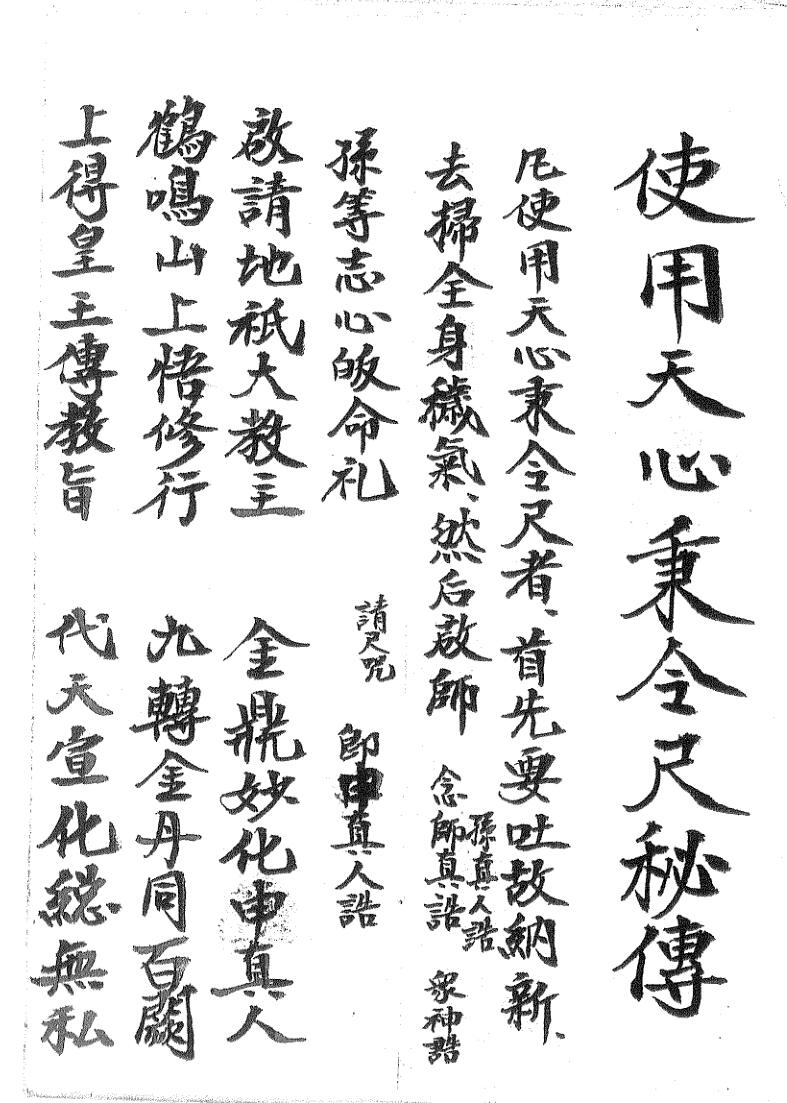 使用天心秉令尺秘傳
凡使用天心秉令尺者、首先要吐故納新、
去掃全身穢氣、然后啟師 念師真誥 孫真人誥 眾神誥
孫等志心皈命礼 請尺咒 即申真人誥
啟請地祇大教主 金鼎妙化申真人
鶴鳴山上悟修行 九轉金丹同百
上得皇王傳教旨 代天宣化總無私